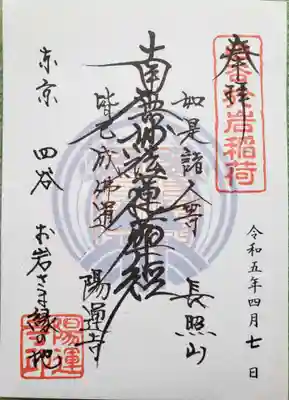 奉拝
於岩稲荷
令和五年四月七日
如是諸人等
長照山
南無妙法蓮華経
皆已成佛道
陽運寺
東京 四谷 お岩さま縁の地
陽運寺印